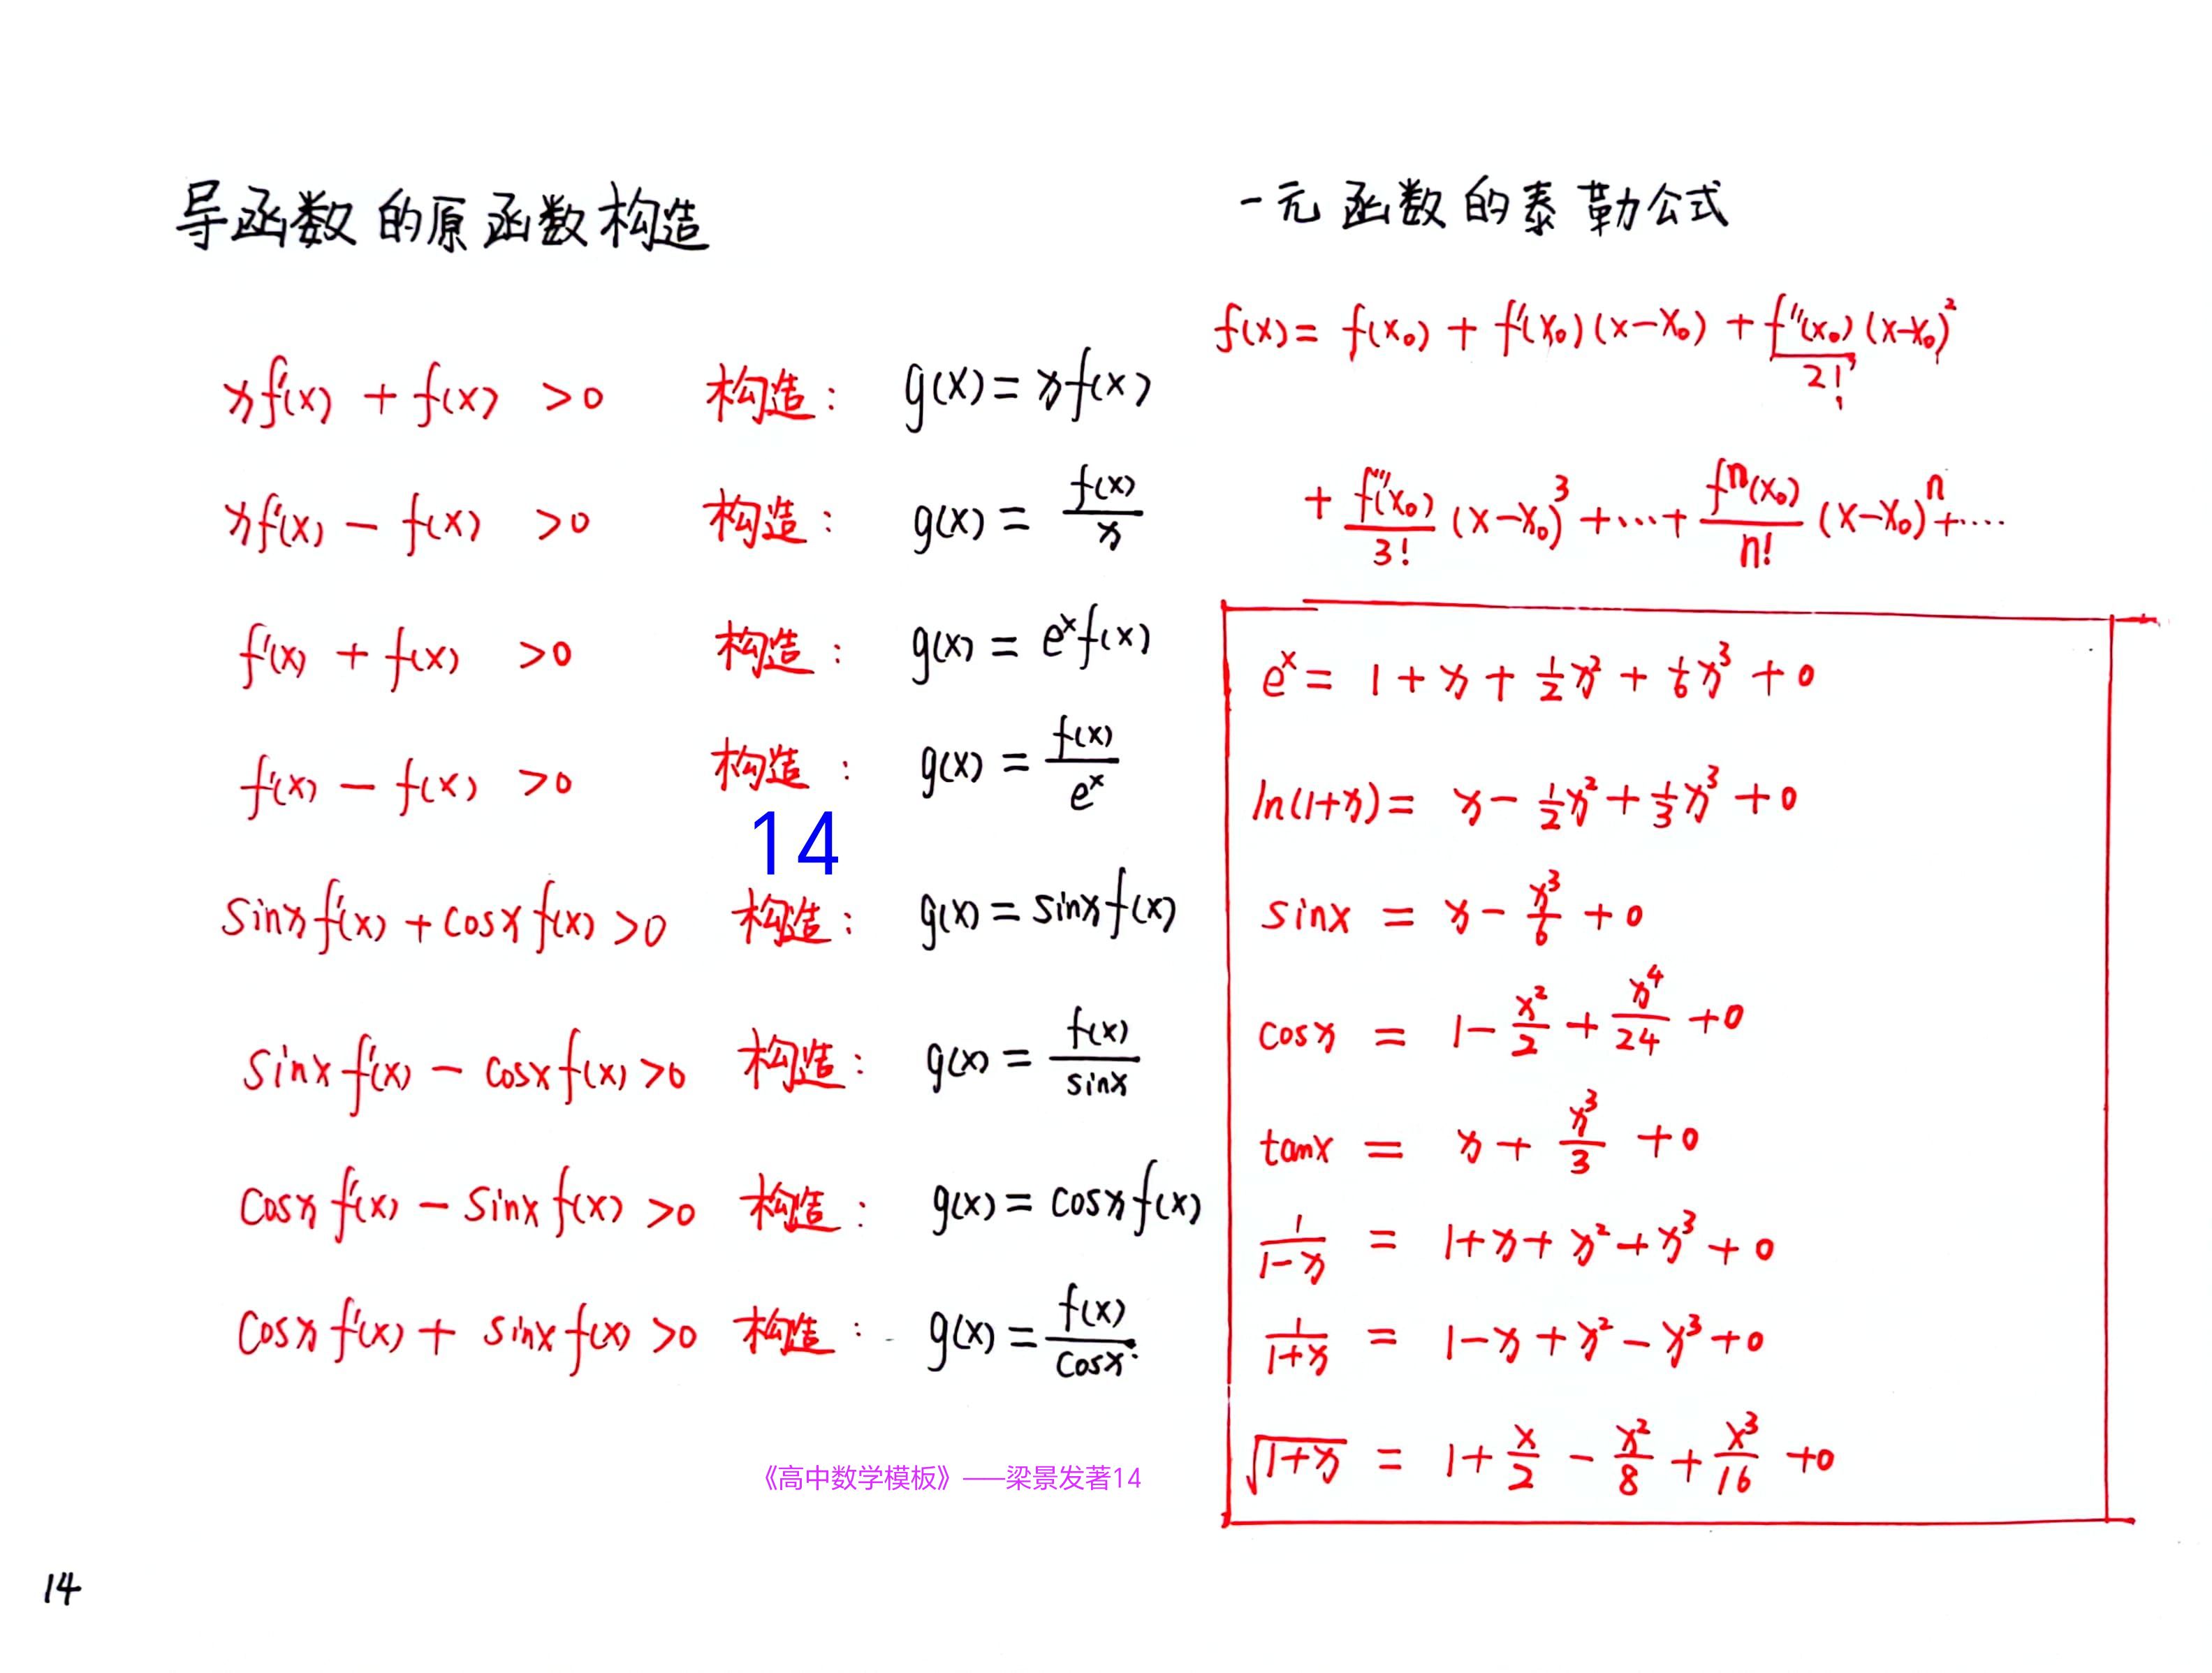 导函数的原函数构造
xf'(x) + f(x) >0 构造: g(x) = xf(x)
xf'(x) - f(x) >0 构造: g(x) = f(x)/x
f'(x) + f(x) >0 构造: g(x) = e^x f(x)
f'(x) - f(x) >0 构造: g(x) = f(x)/e^x
14
sinx f'(x) + cosx f(x) >0 构造: g(x) = sinx f(x)
sinx f'(x) - cosx f(x) >0 构造: g(x) = f(x)/sinx
cosx f'(x) - sinx f(x) >0 构造: g(x) = cosx f(x)
cosx f'(x) + sinx f(x) >0 构造: g(x) = f(x)/cosx
《高中数学模板》——梁景发著14
14
一元函数的泰勒公式
f(x) = f(x₀) + f'(x₀)(x-x₀) + f''(x₀)/2! (x-x₀)²
+ f'''(x₀)/3! (x-x₀)³ + … + fⁿ(x₀)/n! (x-x₀)ⁿ + ….
e^x = 1 + x + 1/2 x² + 1/6 x³ + 0
ln(1+x) = x - 1/2 x² + 1/3 x³ + 0
sinx = x - x³/6 + 0
cosx = 1 - x²/2 + x⁴/24 + 0
tanx = x + x³/3 + 0
1/(1-x) = 1 + x + x² + x³ + 0
1/(1+x) = 1 - x + x² - x³ + 0
√(1+x) = 1 + x/2 - x²/8 + x³/16 + 0